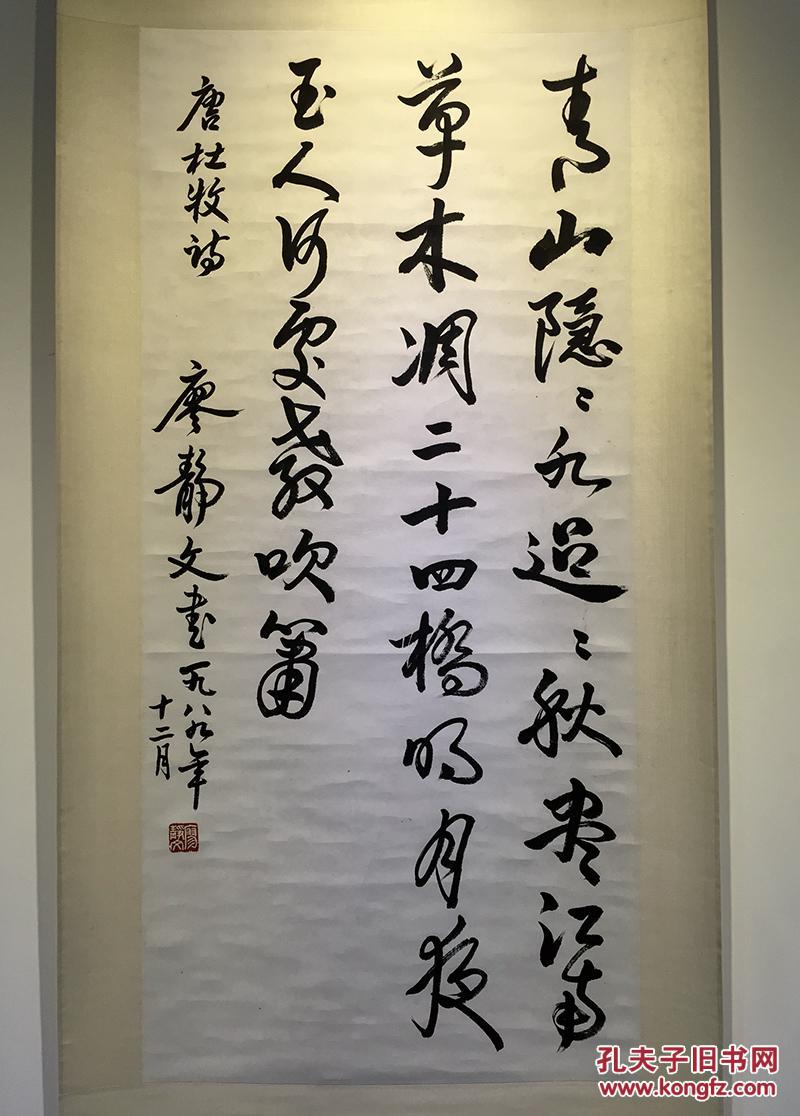 青山隐〻水迢〻秋尽江南
草木凋二十四橋明月夜
玉人何處教吹箫
唐杜牧诗
廖靜文书一九八九年
十二月
廖靜文
孔夫子旧书网
www.kongfz.com